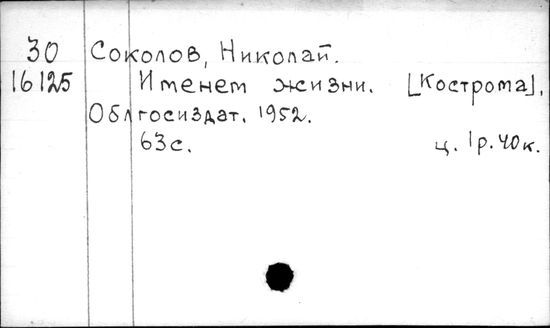 30 Соколов, Николай.
16125 Именем жизни. [Кострома],
Облгосиздат. 1952.
63с. ц. 1р. 40к.